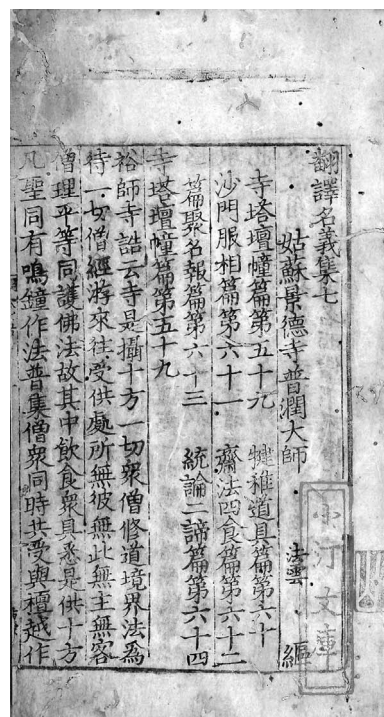 翻譯名義集七
姑蘇景德寺普潤大師 法雲 編
寺塔壇幢篇第五十九 犍稚道具篇第六十
沙門服相篇第六十一 齋法四食篇第六十二
篇聚名報篇第六十三 統論二諦篇第六十四
寺塔壇幢篇第五十九
裕師寺誥云寺是攝十方一切衆僧修道境界法爲
待一切僧經游來往受供處所無彼無此無主無客
僧理平等同護佛法故其中飲食衆具悉是供十方
凡聖同有鳴鐘作法普集僧衆同時共受與檀越作
文庫